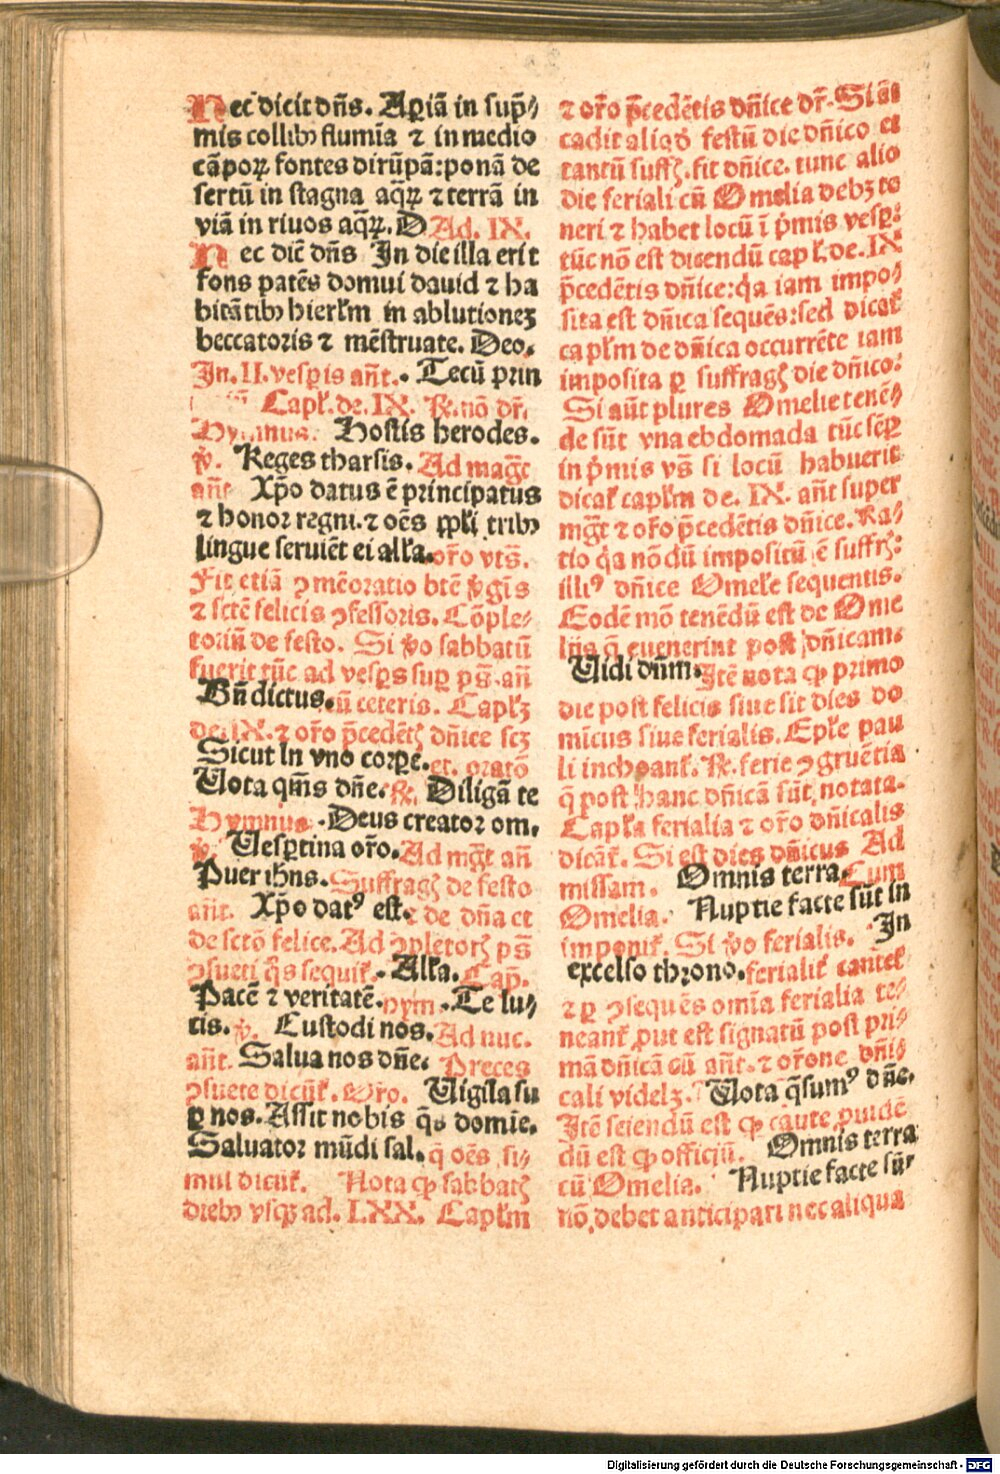 Nec dicit dn̄s. Aꝑiā in sup̄⸗
mis collibꝫ flumīa ⁊ in medio
cāpoꝝ fontes dirūpā: ponā de
sertū in stagna aqꝝ ⁊ terrā in
viā in riuos aqꝝ. D Ad. IX.
Nec dic̄ dn̄s In die illa erit
fons patēs domui dauid ⁊ ha
bitātibꝫ hierl̄m in ablutionez
beccatoris ⁊ mēstruate. Deo.
In. II. vesꝑis an̄t. Tecū prin
Capl̄. de. IX. ℟. nō dr̄.
Hymnus. Hostis herodes.
℣. Reges tharsis. Ad magc̄t
an̄t Xp̄o datus ē principatus
⁊ honor regni. ⁊ oēs ppl̄i tribꝫ
lingue seruiēt ei all̄a. or̄o vts̄.
Fit etiā ꝯmēoratio btē v̄gīs
⁊ sctē felicis ꝯfessoris. Cōple⸗
toriū de festo. Si v̄o sabbatū
fuerit tūc ad vesꝑs suꝑ ps̄. an̄
Bn̄dictus. cū ceteris. Capl̄ꝫ
de. IX. ⁊ or̄o p̄cedēt dn̄ice scꝫ
Sicut in vno corpe. et. oratō
Vota qm̄s dn̄e. ℟. Diligā te
Hymnus. Deus creator om.
℣. Vesꝑtina or̄o. Ad mgc̄t an̄
Puer ih̄ns. Suffrag de festo
an̄t. Xp̄o datꝰ est. ⁊ de dn̄a et
de sctō felice. Ad ꝯpletor ps̄
ꝯsueti q̄s sequit̄. All̄a. Cap̄.
Pacē ⁊ veritatē. hym. Te lu⸗
cis. ℣. Custodi nos. Ad nuc.
an̄t. Salua nos dn̄e. Preces
ꝯsuete dicūt̄. Or̄o. Vigila su
ꝑ nos. Assit nobis q̄s domīe.
Saluator mūdi sal. q̄ oēs si⸗
mul dicūt̄. Nota ꝙ sabbat
diebꝫ vsqꝫ ad. LXX. Capl̄m
⁊ or̄o p̄cedētis dn̄ice dr̄. Si āt
cadit aliqd̄ festū die dn̄ico et
tantū suffr. fit dn̄ice. tunc alio
die feriali cū Omelia debꝫ te
neri ⁊ habet locū ī p̄mis vesꝑ:
tūc nō est dicendū capl̄. de. IX
p̄cedētis dn̄ice: qa iam impo⸗
sita est dn̄ica sequēs: sed dicat̄
capl̄m de dn̄ica occurrēte iam
imposita ꝑ suffrag die dn̄ico:
Si aūt plures Omelie tenē⸗
de sūt vna ebdomada tūc sēꝑ
in p̄mis vs̄ si locū habuerit
dicat̄ capl̄m de. IX. an̄t super
mgc̄t ⁊ or̄o p̄cedētis dn̄ice. Ra⸗
tio qa nōdū impositū ē suffr:
illiꝰ dn̄ice Omel̄e sequentis.
Eodē mō tenēdū est de Ome
liis q̄ euenerint post dn̄icam.
Vidi dn̄m. Itē nota ꝙ primo
die post felicis siue sit dies do
micus siue ferialis. Epl̄e pau
li inchoant̄. ℟. ferie ꝯgruētia
q̄ post hanc dn̄icā sūt notata.
Capl̄a ferialia ⁊ or̄o dn̄icalis
dicāt̄. Si est dies dn̄icus Ad
missam. Omnis terra. Cum
Omelia. Nuptie facte sūt in
imponit̄. Si v̄o ferialis. In
excelso throno. ferialit̄ cantet̄
⁊ ꝑ ꝯsequēs omīa ferialia te⸗
neant̄ ꝓut est signatū post pri⸗
mā dn̄icā cū an̄t. ⁊ or̄one dn̄i⸗
cali videlꝫ. Vota q̄sumꝰ dn̄e.
Itē sciendū est ꝙ caute ꝓuidē
dū est ꝙ officiū. Omnis terra
cū Omelia. Nuptie facte sūt
nō debet anticipari nec aliqua
Digitalisierung gefördert durch die Deutsche Forschungsgemeinschaft - DFG